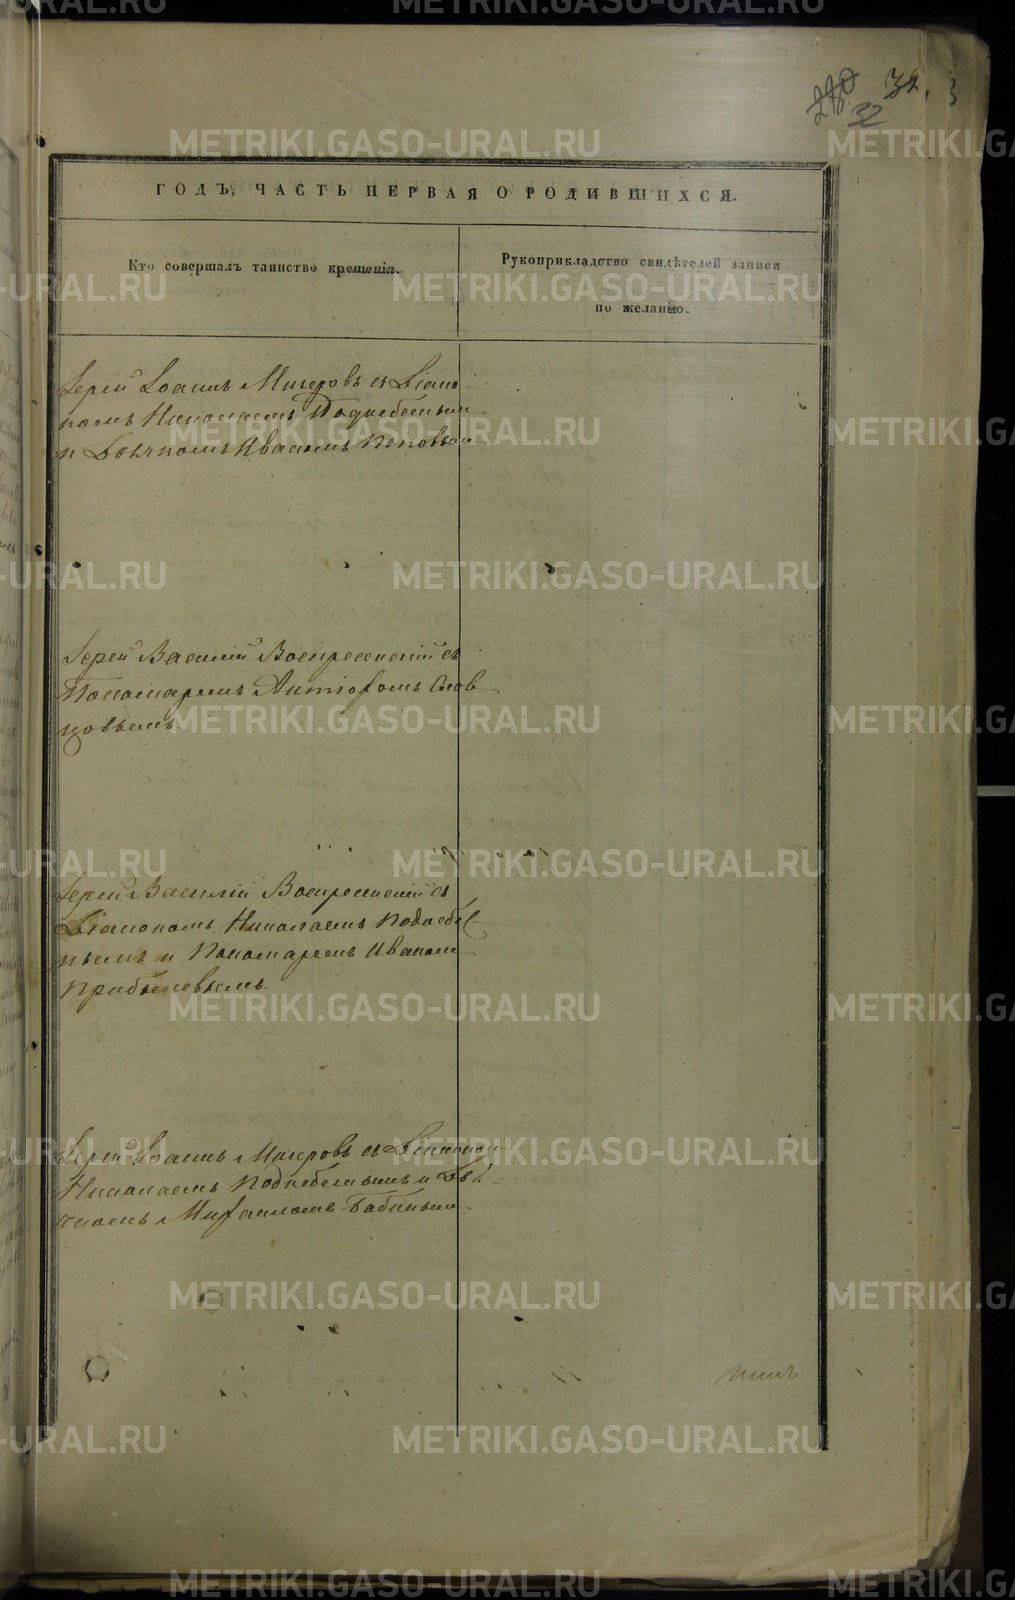 32.
32
ГОДЪ, ЧАСТЬ ПЕРВАЯ О РОДИВШИХСЯ.
Кто совершалъ таинство крещенія.
Рукоприкладство свидѣтелей записи
по желанію.
Іерей Іоаннъ Мизеровъ съ Діако
номъ Николаемъ Поднебесным
и Дьячкомъ Иваномъ Поповым
Іерей Василій Воскресенскій съ
Пономаремъ Слов
цовымъ.
Іерей Василій Воскресенскій съ
Діакономъ Николаемъ Поднебес
нымъ и Пономаремъ Иваномъ
Прибылевымъ.
Іерей Іоаннъ Мизеровъ съ Діаконом
Николаемъ Поднебеснымъ и Дья
чкомъ Михаиломъ Бабинымъ.
METRIKI.GASO-URAL.RU